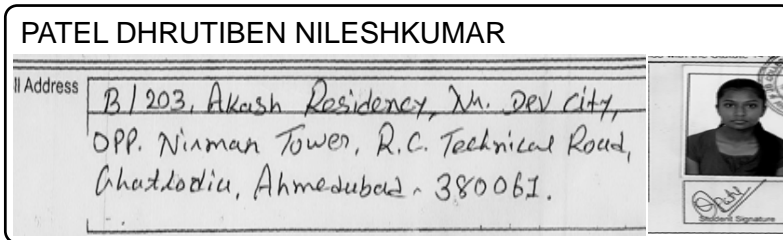 PATEL DHRUTIBEN NILESHKUMAR
ll Address
B/203, Akash Residency, Nr. Dev City,
OPP. Nirman Tower, R.C. Technical Road,
Ghatlodia, Ahmedabad - 380061.
Student Signature